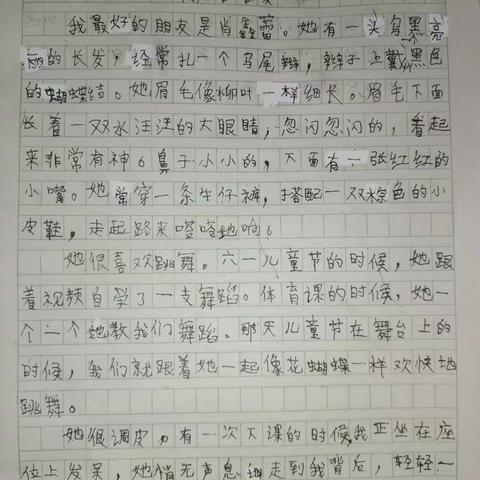 我最好的朋友是肖鑫蕾。她有一头乌黑亮
丽的长发，经常扎一个马尾辫，辫子上戴黑色
的蝴蝶结。她眉毛像柳叶一样细长。眉毛下面
长着一双水汪汪的大眼睛，忽闪忽闪的，看起
来非常有神。鼻子小小的，下面有一张红红的
小嘴。她常穿一条牛仔裤，搭配一双棕色的小
皮鞋，走起路来嗒嗒地响。
她很喜欢跳舞。六一儿童节的时候，她跟
着视频自学了一支舞蹈。体育课的时候，她一
个一个地教我们舞蹈。那天儿童节在舞台上的
时候，我们就跟着她一起像花蝴蝶一样欢快地
跳舞。
她很调皮，有一次下课的时候，我正坐在座
位上发呆，她悄无声息地走到我背后，轻轻一